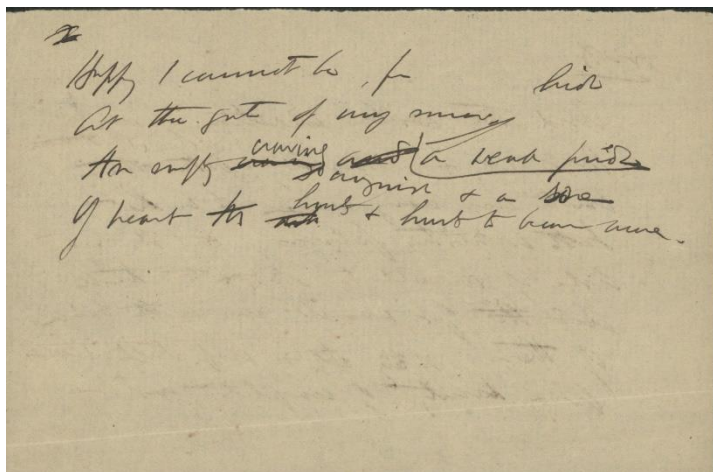 Happy I cannot be, for hide
At the gate of my
An empty craving a weak pride
anguish & a sore
Of heart hurt & hurt to bear more.